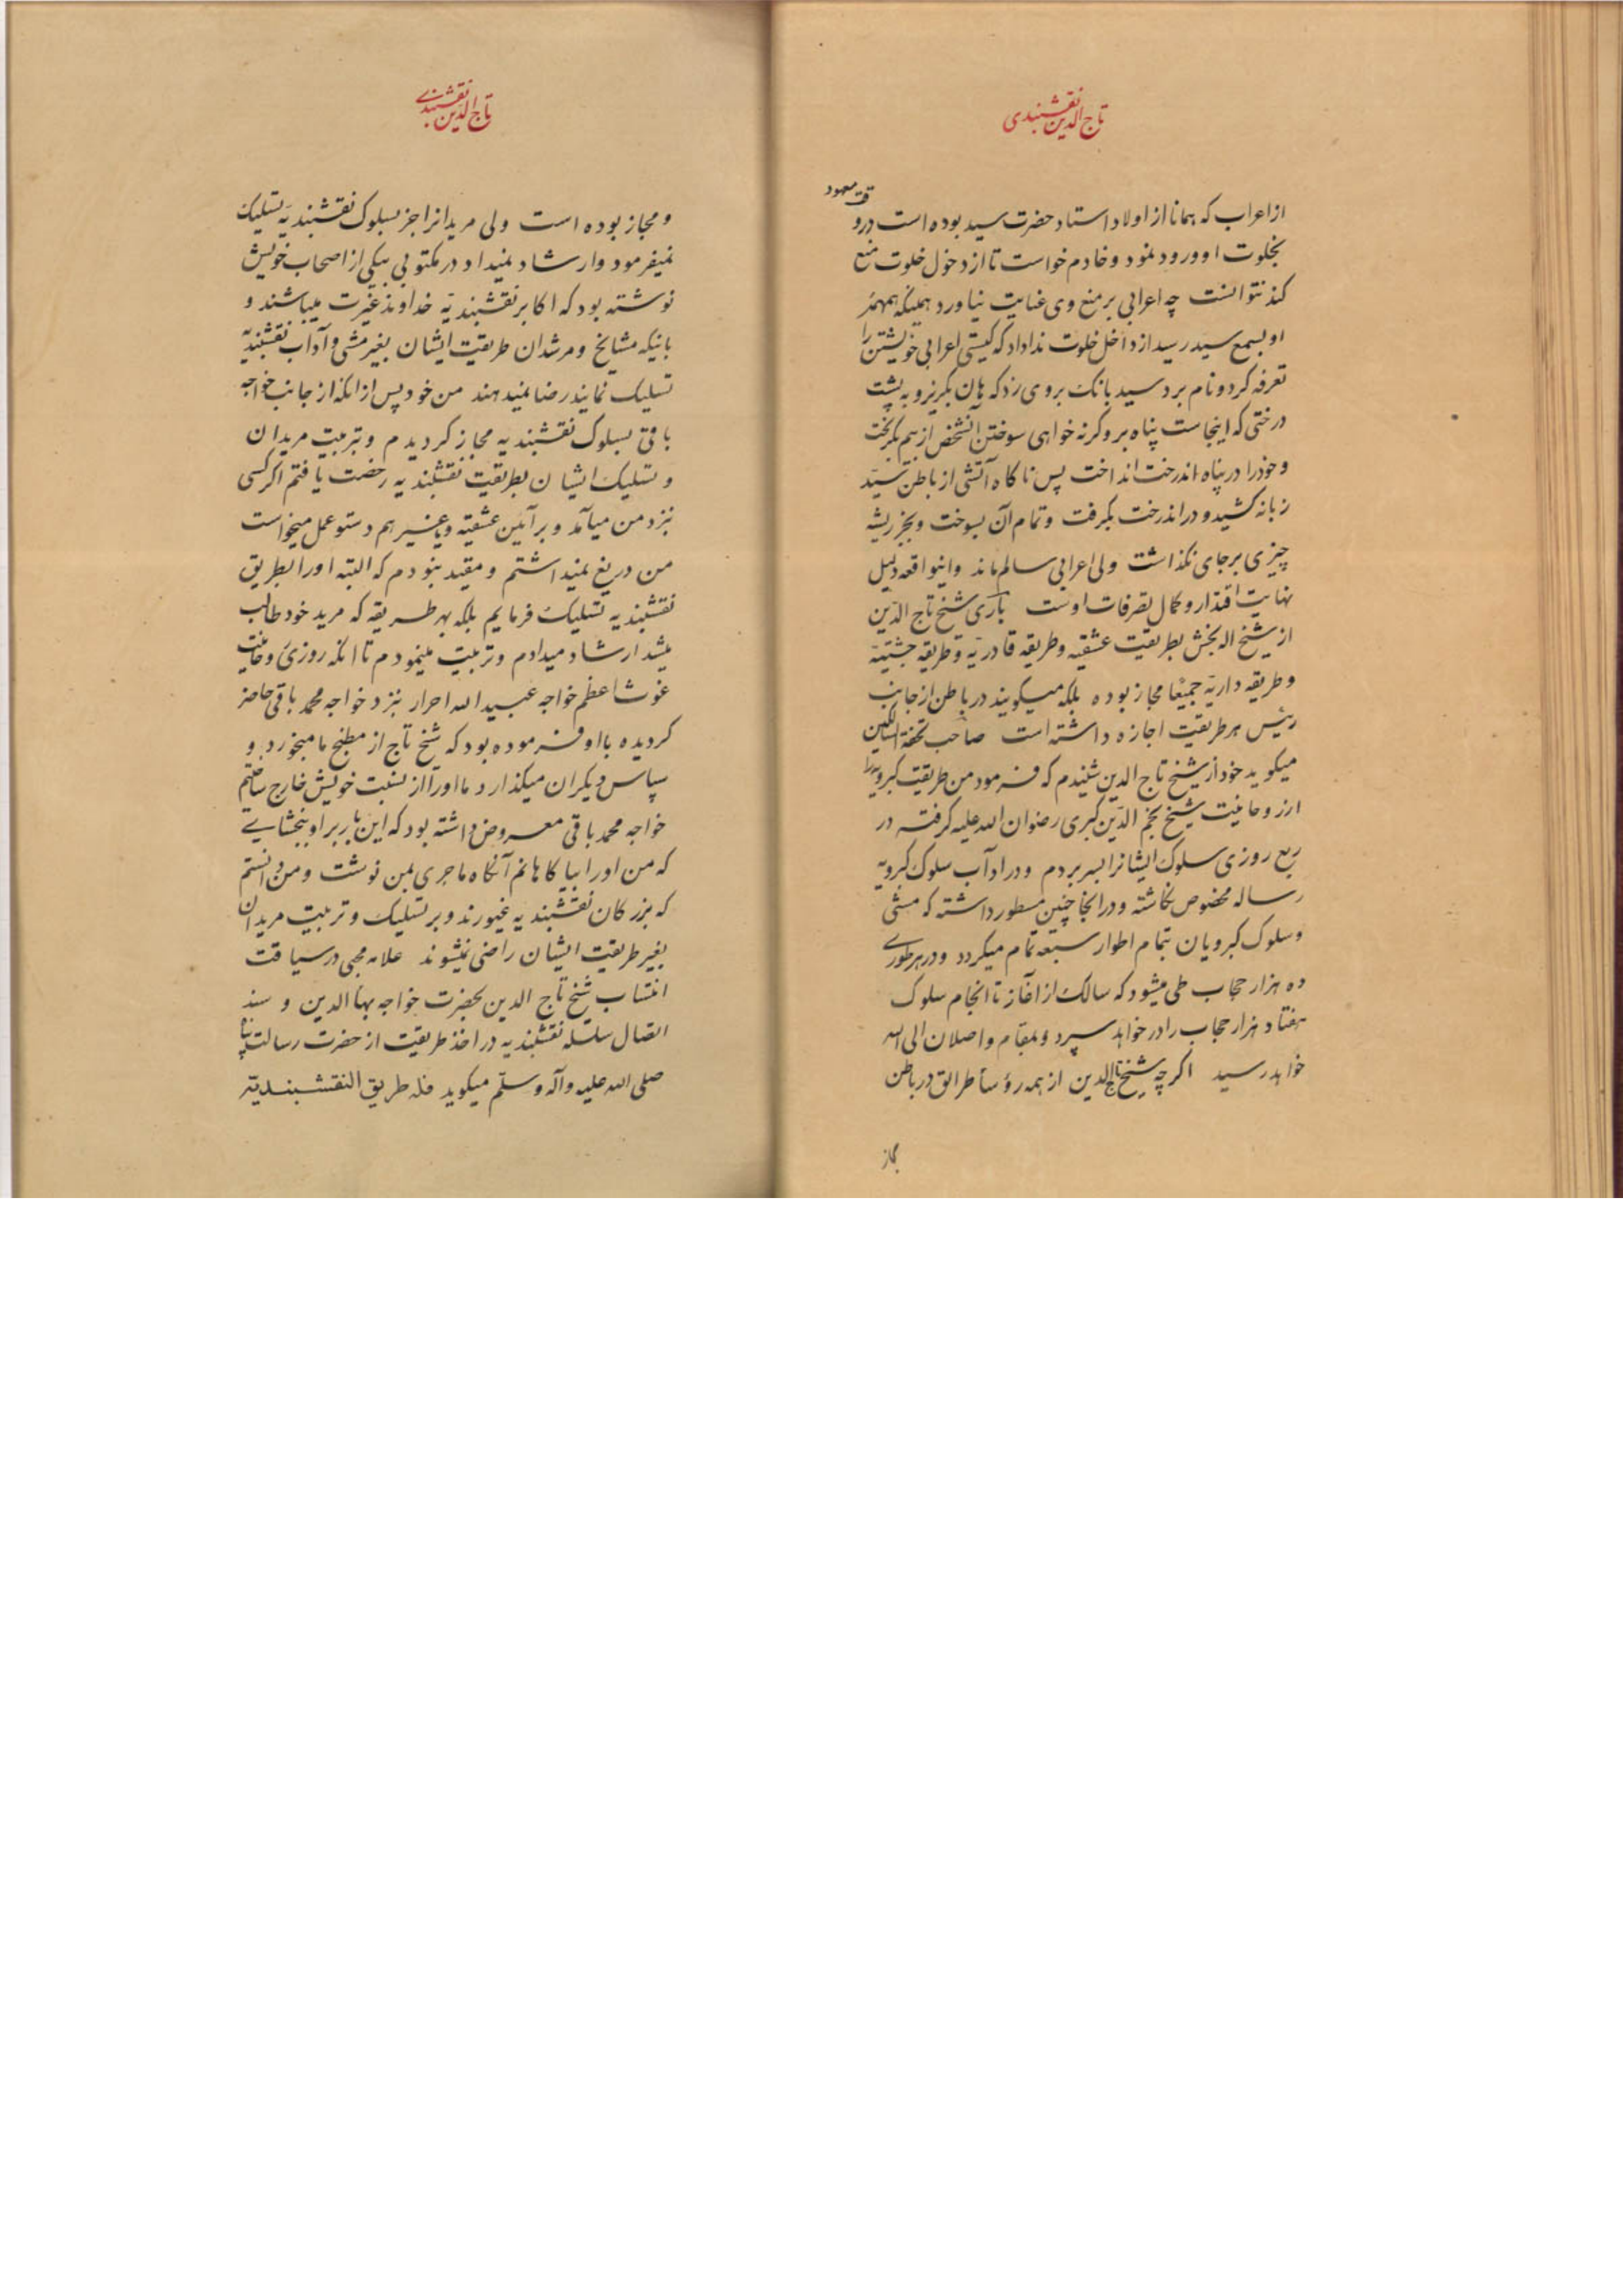 تاج الدین نقشبندی
از اعراب که همانا از اولاد استاد حضرت سید بوده است در وقت معهود
بخلوت او ورود نمود و خادم خواست تا از دخول خلوت منع
کند نتوانست چه اعرابی بر منع وی عنایت نیاورد همینکه همهمهٔ
او بسمع سید رسید از داخل خلوت ندا داد که کیستی اعرابی خویشتن را
تعرفه کرد و نام برد سید بانک بروی زد که هان بکریز و به پشت
درختی که اینجاست پناه بر وکرنه خواهی سوختن آنشخص از بیم بکریخت
و خود را در پناه اندرخت انداخت پس ناکاه آتشی از باطن سید
زبانه کشید و در اندرخت بکرفت و تمام آن بسوخت و بجز ریشه
چیزی بر جای نکذاشت ولی اعرابی سالم ماند و اینواقعه دلیل
نهایت اقتدار و کمال تصرفات اوست باری شیخ تاج الدین
از شیخ اله بخش بطریقت عشقیه و طریقه قادریه و طریقه چشتیه
و طریقه داریه جمیعا مجاز بوده بلکه میکویند در باطن از جانب
رئیس هر طریقت اجازه داشته است صاحب تحفة السالکین
میکوید خود از شیخ تاج الدین شنیدم که فرمود من طریقت کبرویه را
از روحانیت شیخ نجم الدین کبری رضوان الله علیه کرفته در
ربع روزی سلوک ایشانرا بسر بردم و در اداب سلوک کبرویه
رساله مخصوص نکاشته و در انجا چنین مسطور داشته که مشی
و سلوک کبرویان بتمام اطوار سبعه تمام میکردد و در هر طوری
ده هزار حجاب طی میشود که سالک از آغاز تا انجام سلوک
هفتاد هزار حجاب را در خواهد سپرد و بمقام واصلان الی الله
خواهد رسید اکرچه شیخ تاج الدین از همه رؤسأ طرائق در باطن
مجاز
تاج الدین نقشبندی
و مجاز بوده است ولی مریدانرا جز بسلوک نقشبندیه تسلیک
نمیفرمود و ارشاد نمیداد در مکتوبی بیکی از اصحاب خویش
نوشته بود که اکابر نقشبندیه خداوند غیرت میباشند و
بانیکه مشایخ و مرشدان طریقت ایشان بغیر مشی و آداب نقشبندیه
تسلیک نمایند رضا نمیدهند من خود پس از انکه از جانب خواجه
باقی بسلوک نقشبندیه مجاز کردیدم و بتربیت مریدان
و تسلیک ایشان بطریقت نقشبندیه رخصت یافتم اکر کسی
نزد من میآمد و بر آیین عشقیه و یا غیر هم دستو عمل میخواست
من دریغ نمیداشتم و مقید نبودم که البته او را بطریق
نقشبندیه تسلیک فرمایم بلکه بهر طریقه که مرید خود طالب
میشد ارشاد میدادم و تربیت مینمودم تا انکه روزی روحانیت
غوث اعظم خواجه عبید الله احرار نزد خواجه محمد باقی حاضر
کردیده با او فرموده بود که شیخ تاج از مطبخ ما میخورد و
سپاس دیکران میکذارد ما او را از نسبت خویش خارج ساختیم
خواجه محمد باقی معروض داشته بود که این بار بر او ببخشایی
که من او را بیاکاهانم آنکاه ماجری بمن نوشت و من دانستم
که بزرکان نقشبندیه غیورند و بر تسلیک و تربیت مریدان
بغیر طریقت ایشان راضی نمیشوند علامه محبی در سیاقت
انتساب شیخ تاج الدین بحضرت خواجه بهاالدین و سند
اتصال سلسله نقشبندیه در اخذ طریقت از حضرت رسالت پناه
صلی الله علیه وآله وسلم میکوید فله طریق النقشبندیة